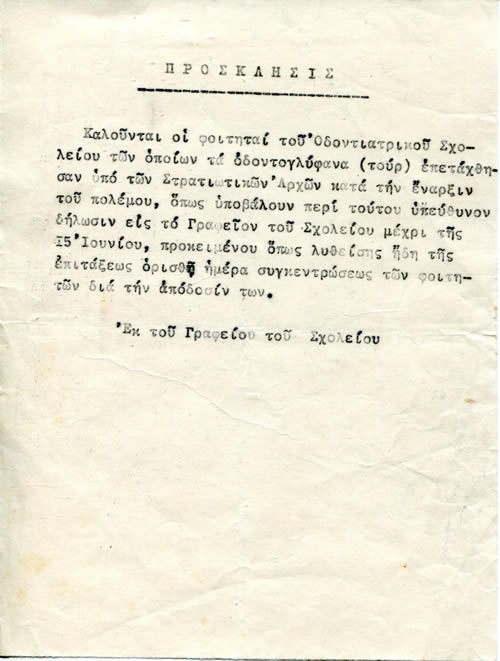 ΠΡΟΣΚΛΗΣΙΣ
Καλοῦνται οἱ φοιτηταί τοῦ Ὀδοντιατρικοῦ Σχο-
λείου τῶν ὁποίων τά ὀδοντογλύφανα (τούρ) ἐπετάχθη-
σαν ὑπό τῶν Στρατιωτικῶν Ἀρχῶν κατά τήν ἔναρξιν
τοῦ πολέμου, ὅπως ὑποβάλουν περί τούτου ὑπεύθυνον
δήλωσιν εἰς τό Γραφεῖον τοῦ Σχολείου μέχρι τῆς
15 Ἰουνίου, προκειμένου ὅπως λυθείσης ἤδη τῆς
ἐπιτάξεως ὁρισθῇ ἡμέρα συγκεντρώσεως τῶν φοιτη-
τῶν διά τήν ἀπόδοσίν των.
Ἐκ τοῦ Γραφείου τοῦ Σχολείου